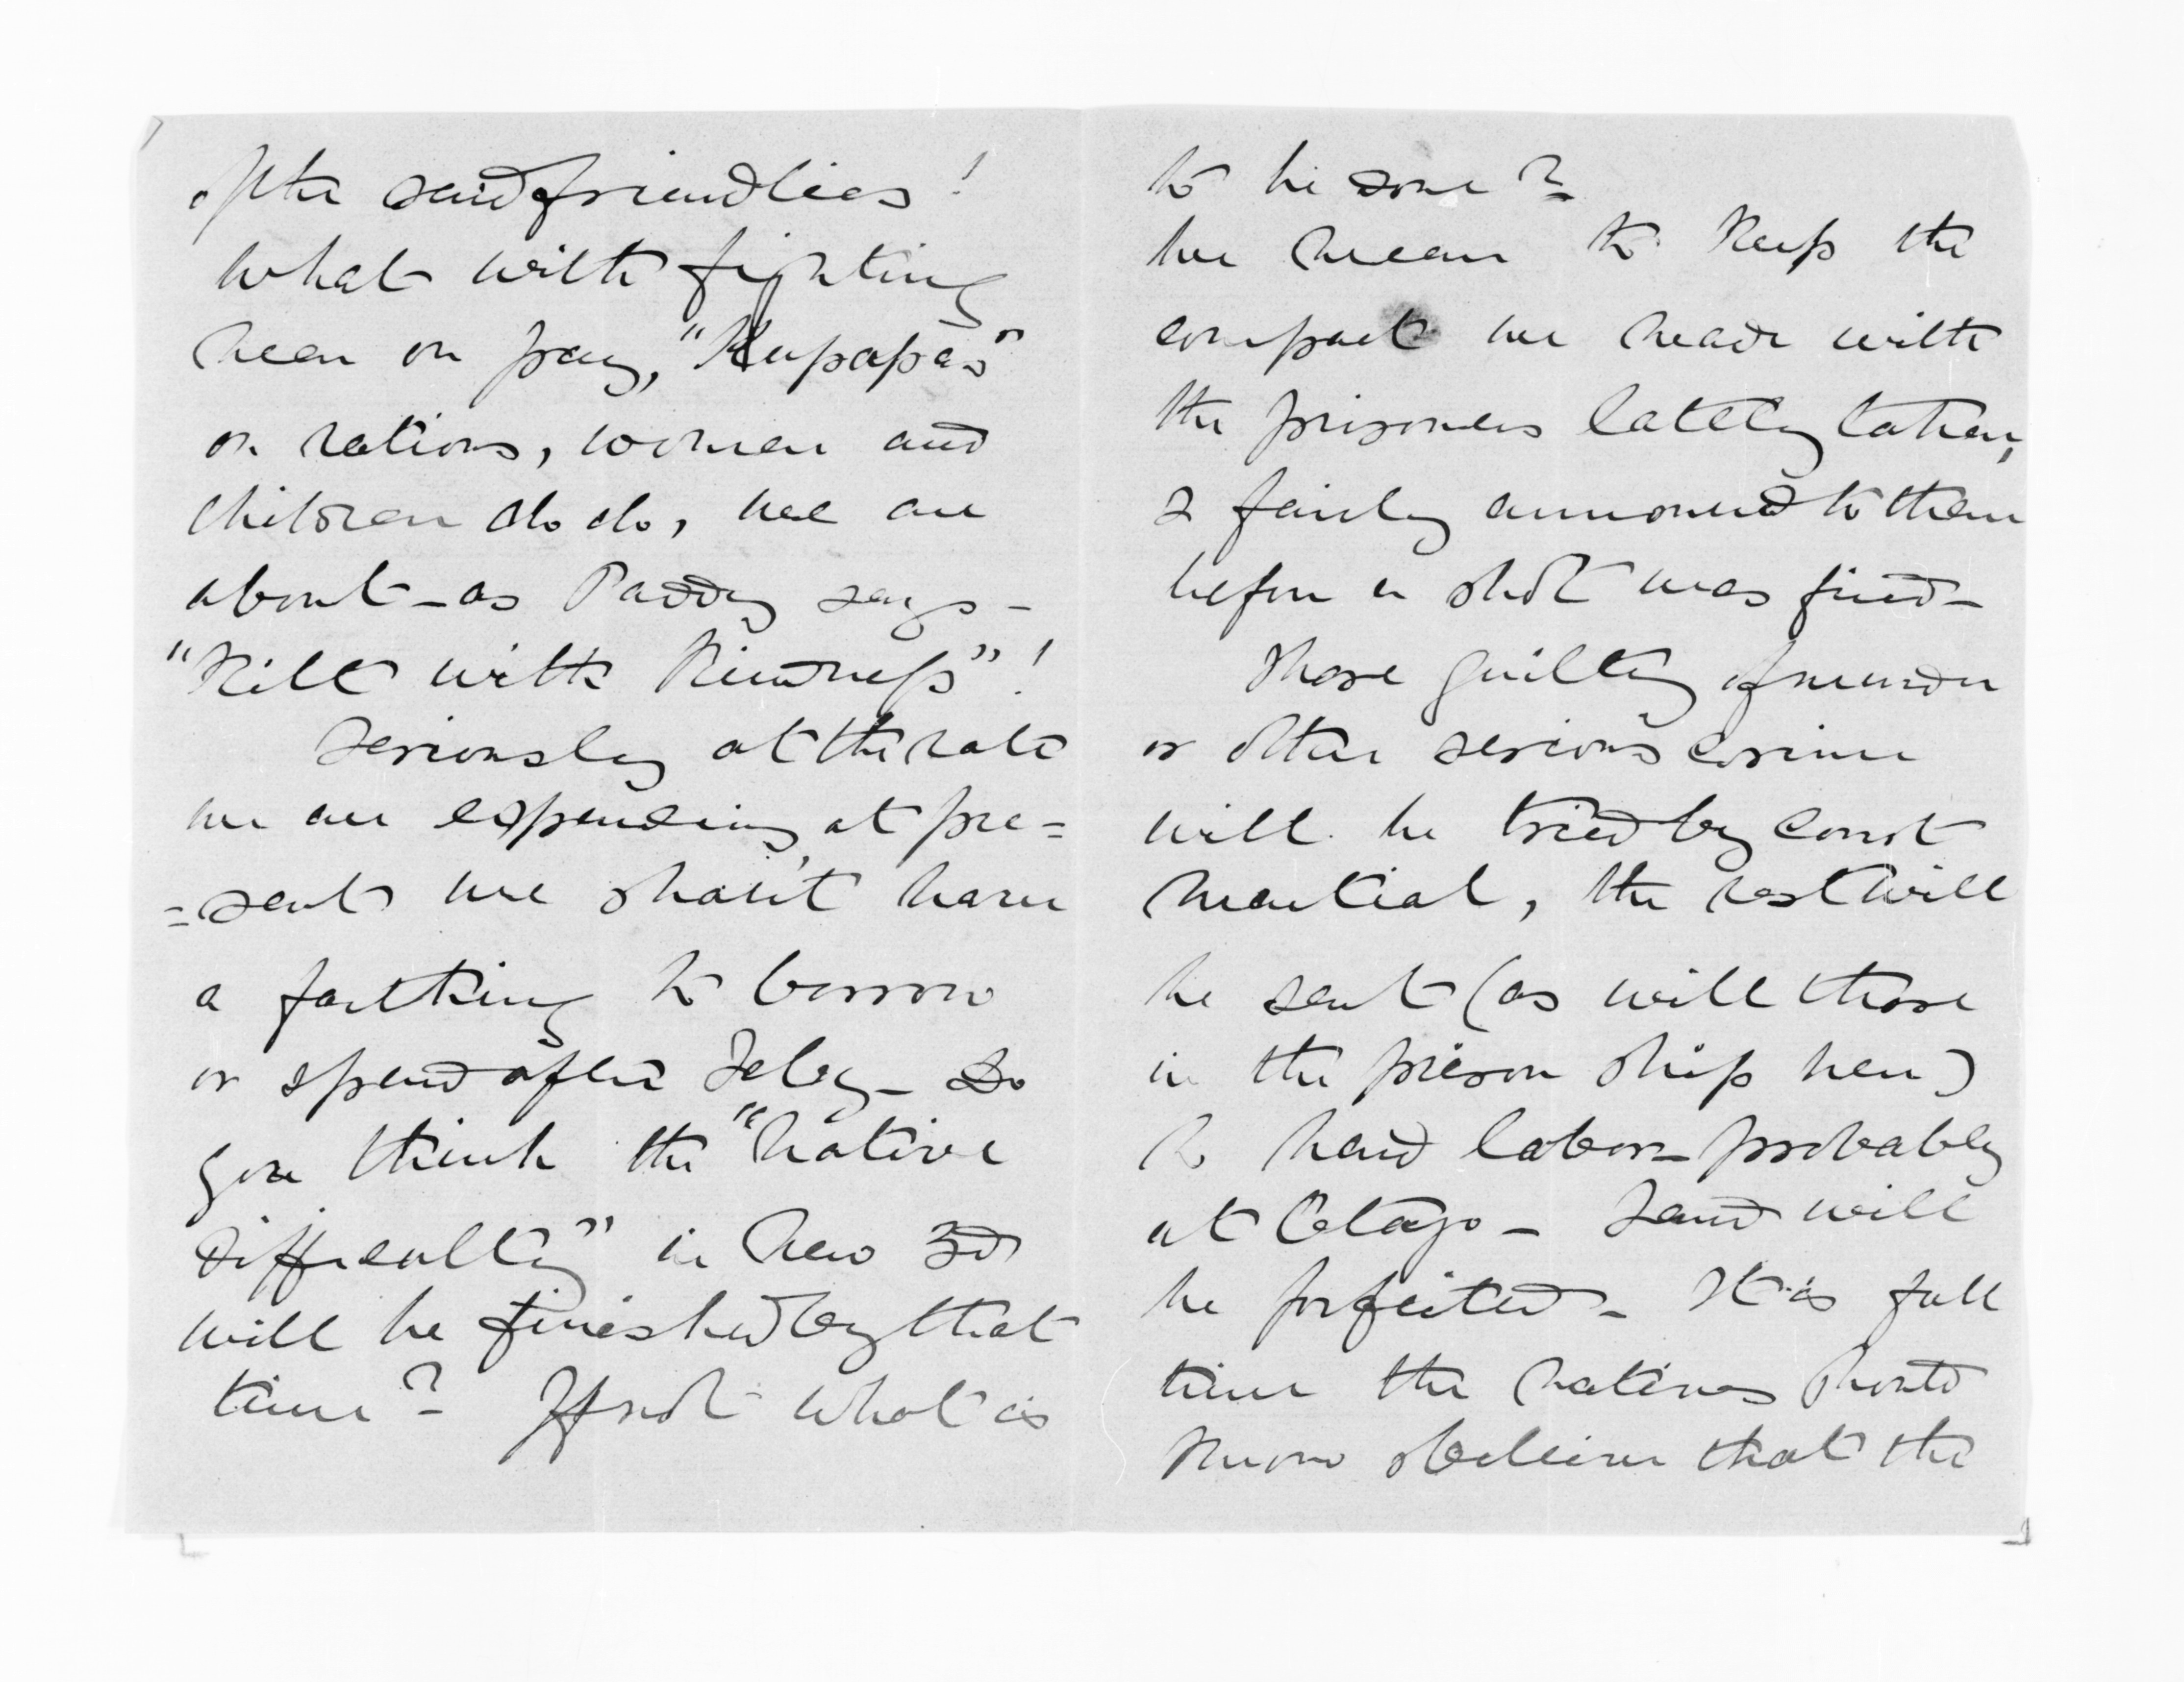 of the said friendlies!
What with fighting
men on pay, "Kupapas"
on rations, women and
children do do, we are
about - as Paddy says -
"Kilt with Kindness"!
Seriously at the rate
we are expending at pre=
=sent we shan't have
a farthing to borrow
or spend after July - Do
you think the "Native
difficulty" in New Zd
will be finished by that
time? - If not what is
to be done?
We mean to keep the
compact we made with
the prisoners lately taken,
& fairly announced to them
before a shot was fired -
Those guilty of murder
or other serious crime
will be tried by Court
Martial, the rest will
be sent (as will those
in the prison ship here)
to hard labor - probably
at Otago - Land will
be forfeited - It is full
time the Natives should
know & believe that the